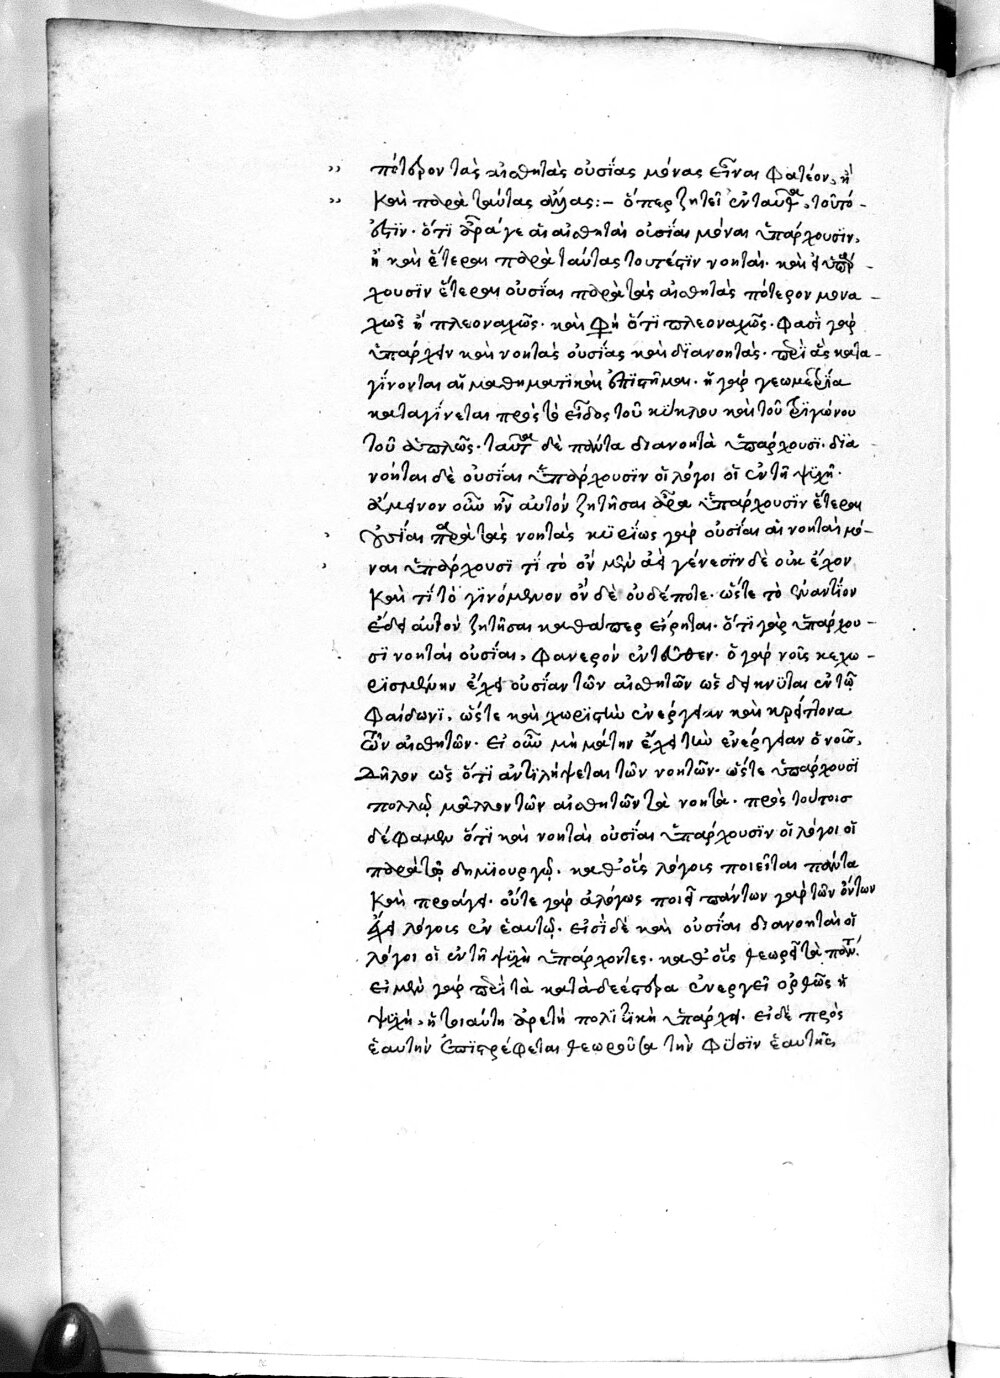 πότερον τὰς αἰσθητὰς οὐσίας μόνας εἶναι φατέον, ἢ
καὶ παρὰ ταύτας ἄλλας:– ὅπερ ζητεῖ ἐνταῦθα, τοῦτό
ἐστιν· ὅτι ἆρά γε αἱ αἰσθηταὶ οὐσίαι μόναι ὑπάρχουσιν,
ἢ καὶ ἕτεραι παρὰ ταύτας τουτέστιν νοηταί· καὶ εἰ ὑπάρ-
χουσιν ἕτεραι οὐσίαι παρὰ τὰς αἰσθητὰς πότερον μονα-
χῶς ἢ πλεοναχῶς· καὶ φησὶ ὅτι πλεοναχῶς· φασὶ γὰρ
ὑπάρχειν καὶ νοητὰς οὐσίας καὶ διανοητάς· περὶ ἃς κατα-
γίνονται αἱ μαθηματικαὶ ἐπιστῆμαι· ἡ γὰρ γεωμετρία
καταγίνεται πρὸς τὸ εἶδος τοῦ κύκλου καὶ τοῦ τριγώνου
τοῦ ἁπλῶς· ταῦτα δὲ πάντα διανοητὰ ὑπάρχουσι· δια
νοηταὶ δὲ οὐσίαι ὑπάρχουσιν οἱ λόγοι οἱ ἐν τῇ ψυχῇ·
ἄμεινον οὖν ἦν αὐτὸν ζητῆσαι ἆρα ὑπάρχουσιν ἕτεραι
οὐσίαι παρὰ τὰς νοητὰς κυρίως γὰρ οὐσίαι αἱ νοηταὶ μό-
ναι ὑπάρχουσι τί τὸ ὂν μὲν ἀεὶ γένεσιν δὲ οὐκ ἔχον
καὶ τί τὸ γινόμενον ὂν δὲ οὐδέποτε· ὥστε τὸ ἐναντίον
ἔδει αὐτὸν ζητῆσαι καθάπερ εἴρηται· ὅτι γὰρ ὑπάρχου-
σι νοηταὶ οὐσίαι, φανερὸν ἐντεῦθεν· ὁ γὰρ νοῦς κεχω-
ρισμένην ἔχει οὐσίαν τῶν αἰσθητῶν ὡς δείκνυται ἐν τῷ
Φαίδωνι, ὥστε καὶ χωριστὴν ἐνέργειαν καὶ κρείττονα
τῶν αἰσθητῶν· εἰ οὖν μὴ μάτην ἔχει τὴν ἐνέργειαν ὁ νοῦς,
δῆλον ὡς ὅτι ἀντιλήψεται τῶν νοητῶν· ὥστε ὑπάρχουσι
πολλῷ μᾶλλον τῶν αἰσθητῶν τὰ νοητά· πρὸς τούτοις
δέ φαμεν ὅτι καὶ νοηταὶ οὐσίαι ὑπάρχουσιν οἱ λόγοι οἱ
παρὰ τῷ δημιουργῷ· καθ' οἷς λόγοις ποιεῖται πάντα
καὶ προάγει· οὔτε γὰρ ἀλόγως ποιεῖ πάντων γὰρ τῶν ὄντων
ἔχει λόγοις ἐν ἑαυτῷ· εἰσὶ δὲ καὶ οὐσίαι διανοηταὶ οἱ
λόγοι οἱ ἐν τῇ ψυχῇ ὑπάρχοντες· καθ' οἷς θεωρεῖ τὰ πάντα·
εἰ μὲν γὰρ περὶ τὰ καταδεέστερα ἐνεργεῖ ὀρθῶς ἡ
ψυχή, ἡ τοιαύτη ἀρετὴ πολιτικὴ ὑπάρχει· εἰ δὲ πρὸς
ἑαυτὴν ἐπιστρέφεται θεωροῦσα τὴν φύσιν ἑαυτῆς,